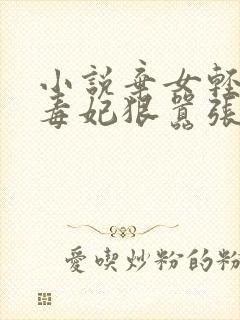 小說棄女輕
毒妃狠囂張
愛喫炒粉的粉